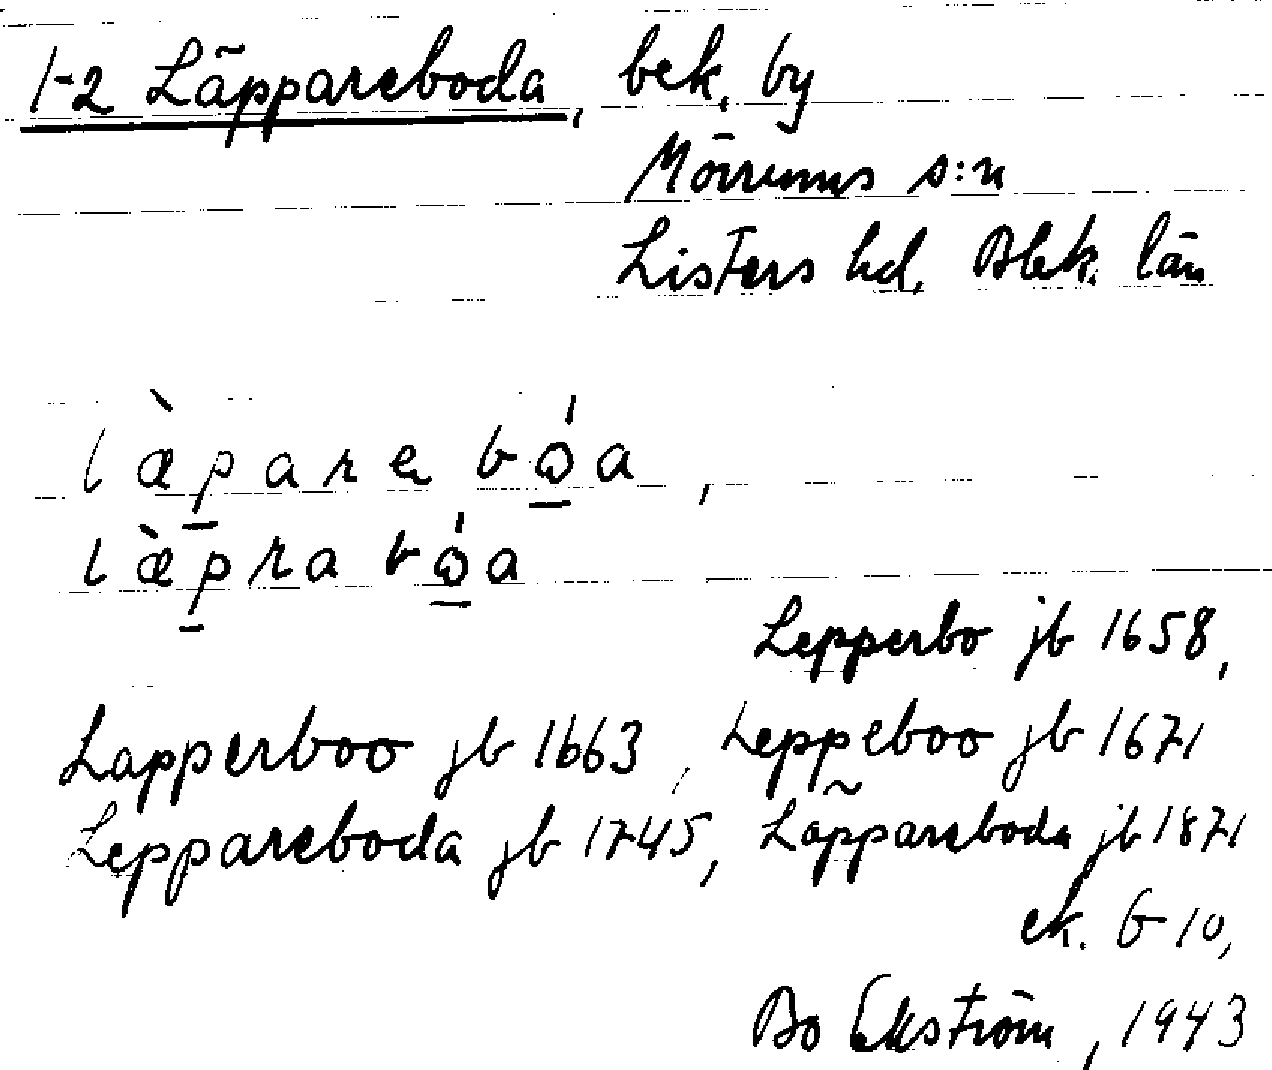 1-2 Läppareboda, bek. by
Mörrums s:n
Listers hd. Blek. län
læ̀pare bóa,
læ̀pra bóa
Lepperbo jb 1658,
Lapperboo jb 1663, Leppeboo jb 1671
Leppareboda jb 1745, Läppareboda jb 1871
ek. b 10,
Bo Ekström, 1943